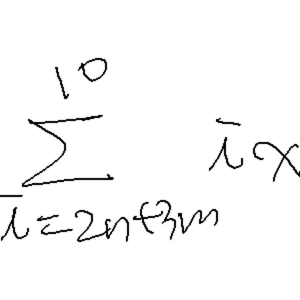 \sum_{i=2n+3m}^{10} ix